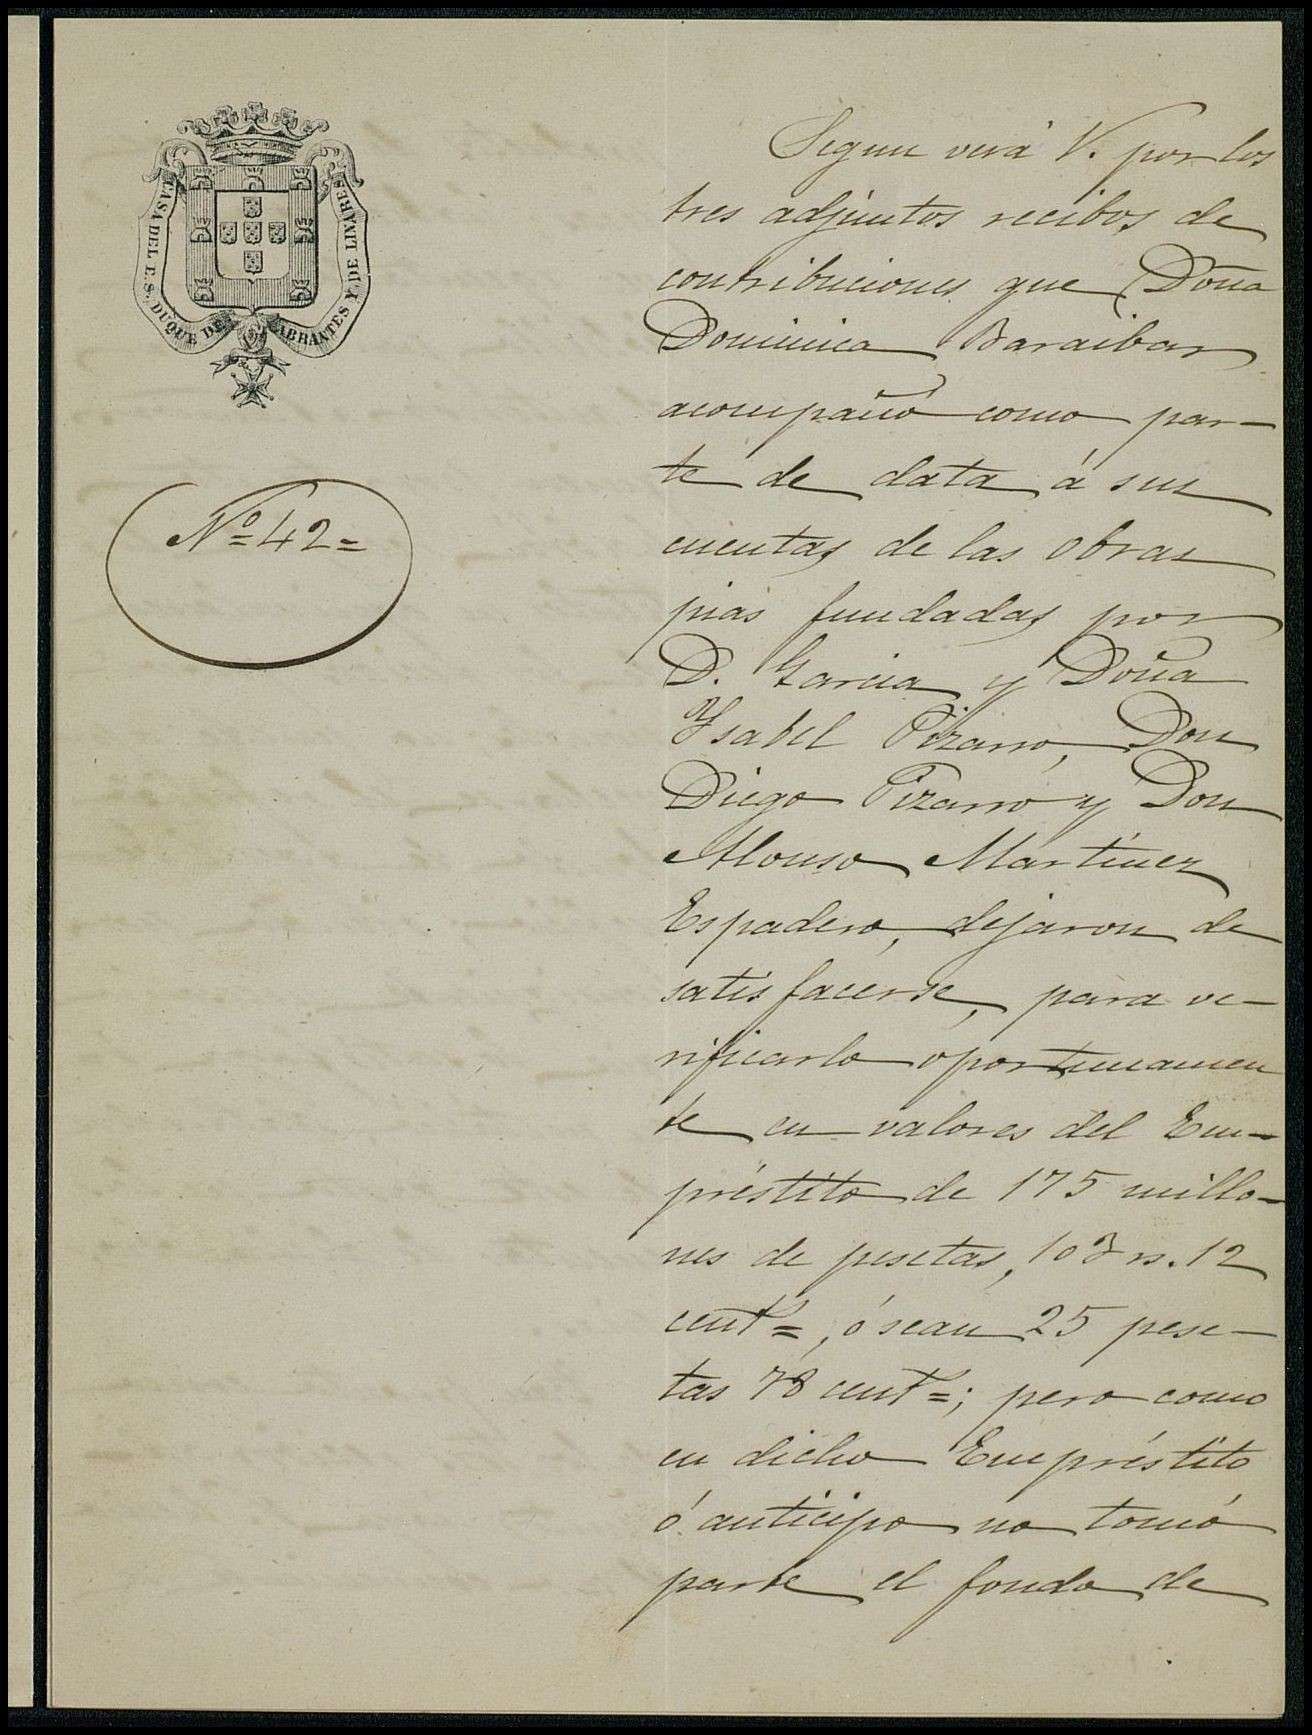 CASA DEL E. S. DUQUE DE ABRANTES Y DE LINARES
Nº 42=
Segun verá V. por los
tres adjuntos recibos de
contribuciones que Doña
Dominica Baraibar
acompañó como par-
te de data á sus
cuentas de las obras
pias fundadas por
D. Garcia y Doña
Ysabel Pizarro, Don
Diego Pizarro y Don
Alonso Martínez
Espadero, dejaron de
satisfacerse, para ve-
rificarlo oportunamen
te en valores del Em-
préstito de 175 millo-
nes de pesetas, 103 rs. 12
centˢ=, ó sean 25 pese-
tas 78 centˢ=; pero como
en dicho Empréstito
ó anticipo no tomó
parte el fondo de